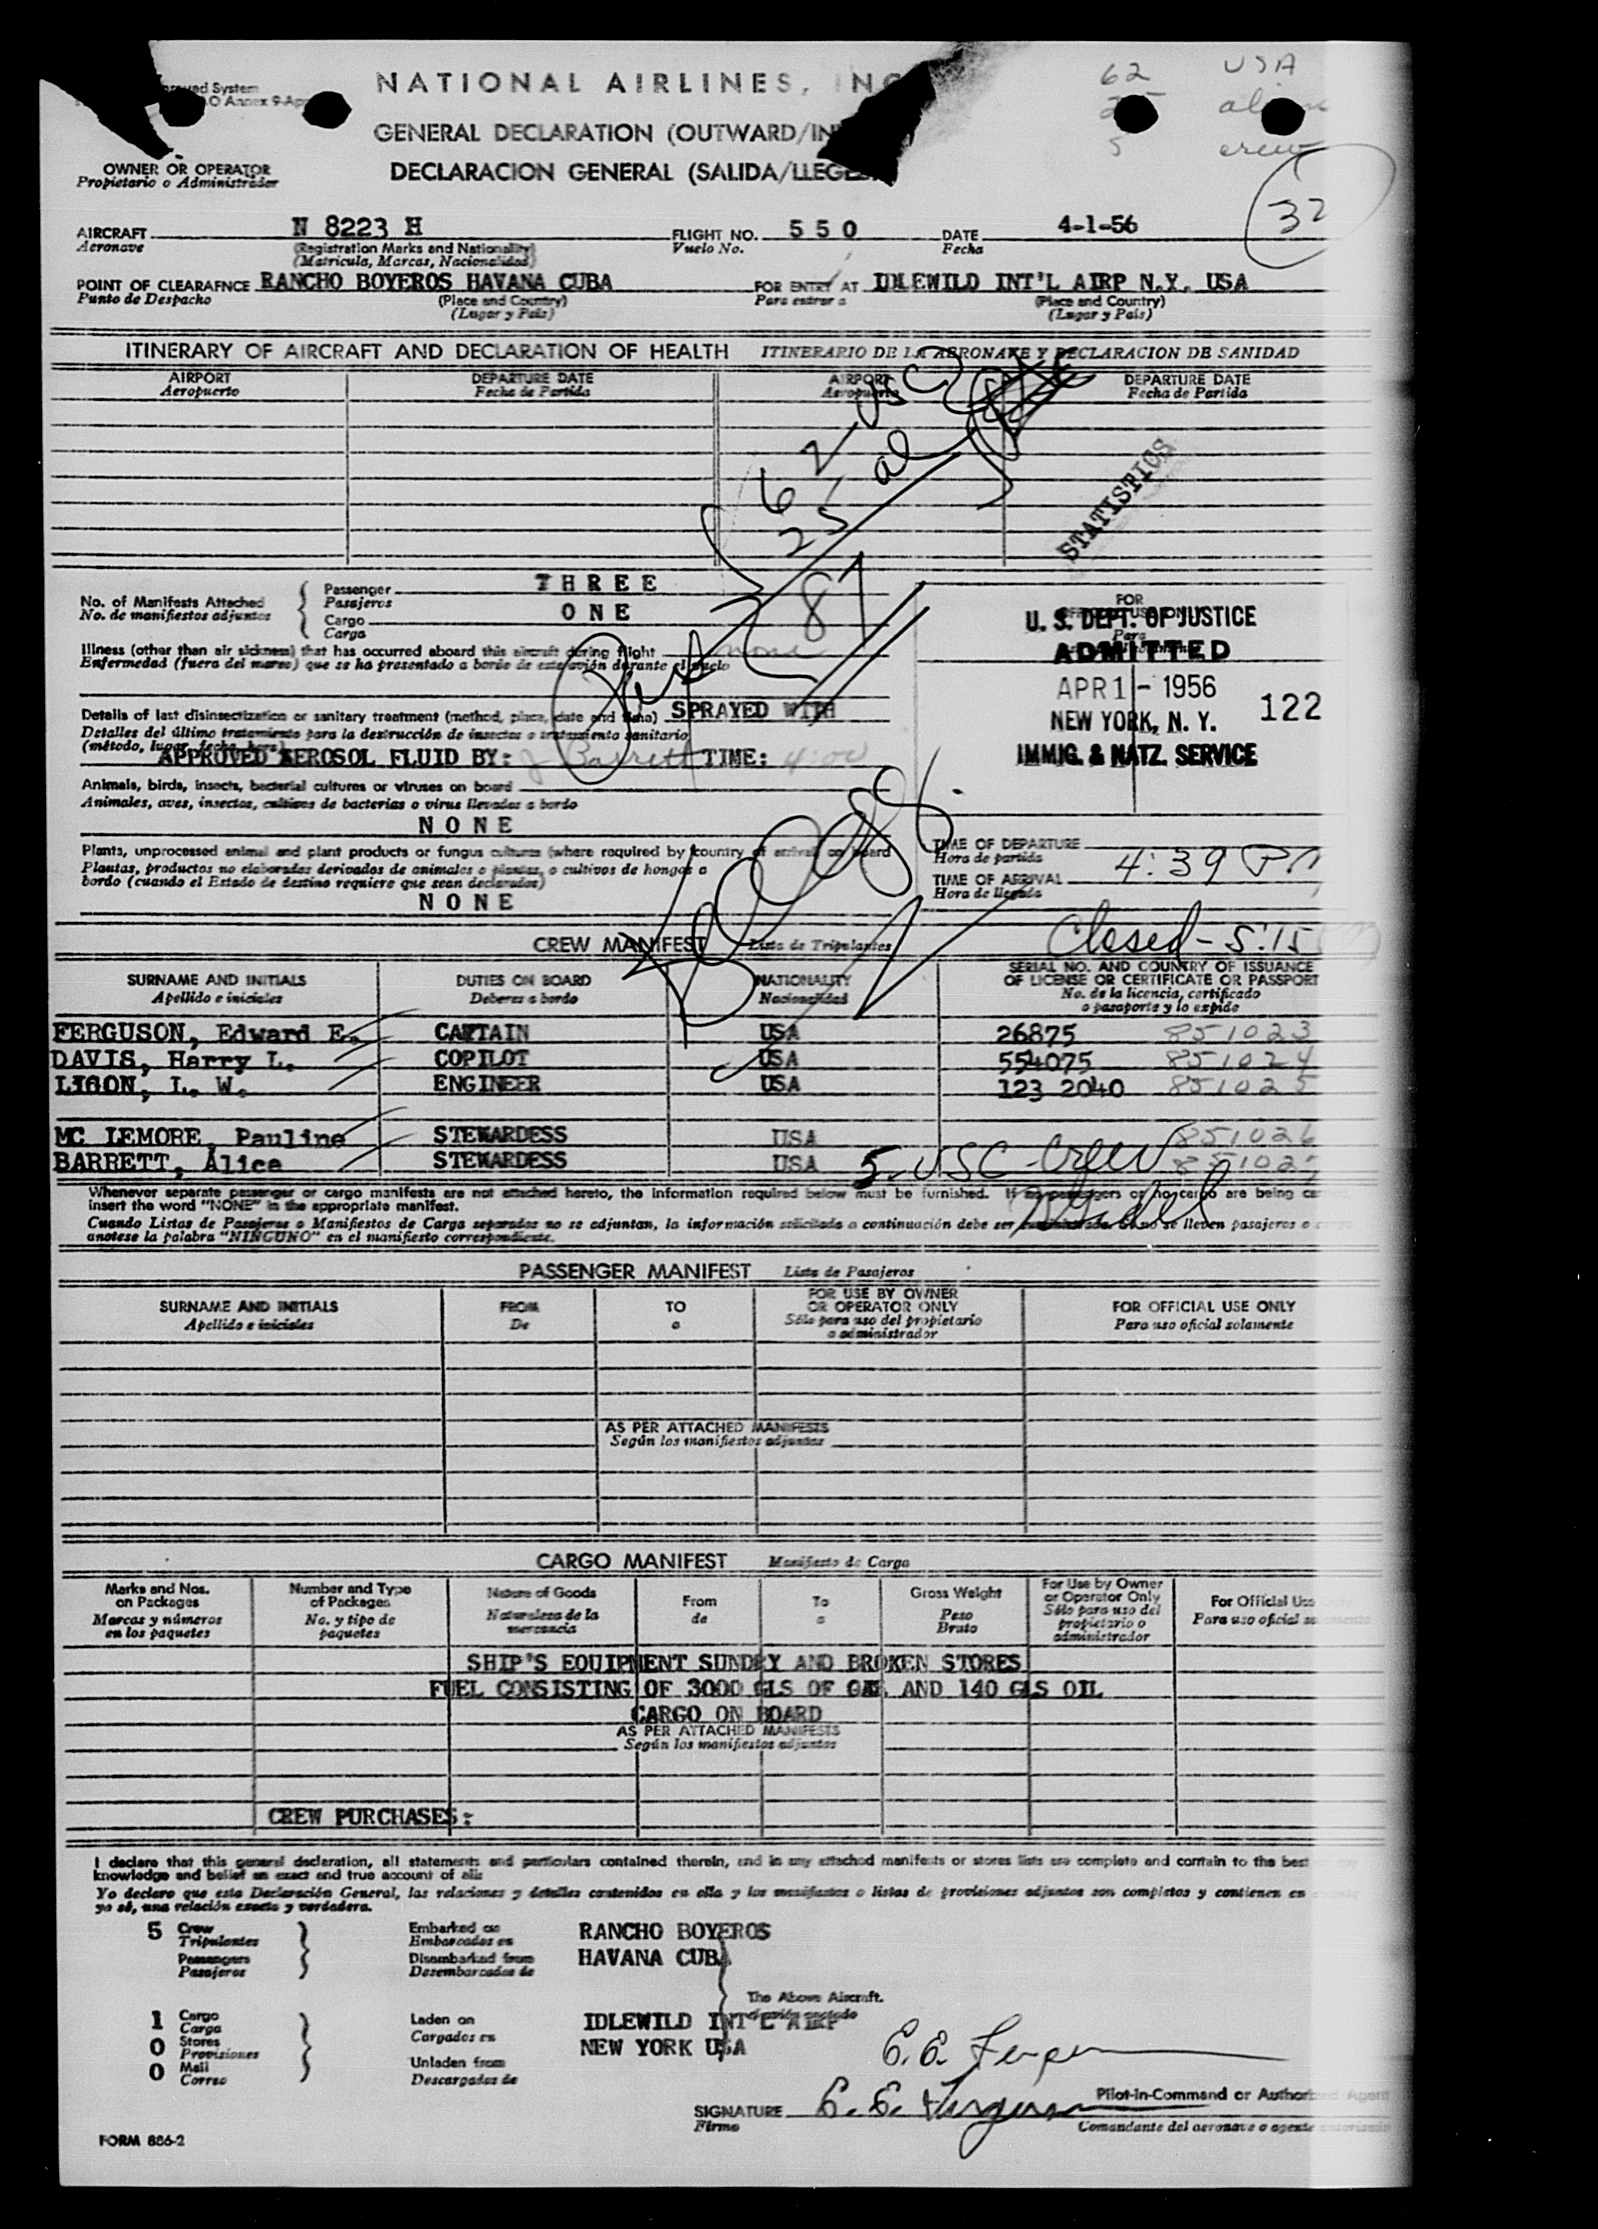 NATIONAL AIRLINES, INC
62 USA
GENERAL DECLARATION (OUTWARD/IN
5 crew
OWNER OR OPERATOR
Propietario o Administrador
DECLARACION GENERAL (SALIDA/LLEG
32
AIRCRAFT N 8223 H FLIGHT NO. 550 DATE 4-1-56
Aeronave (Registration Marks and Nationality) Vuelo No. Fecha
(Matricula, Marcas, Nacionalidad)
POINT OF CLEARAFNCE RANCHO BOYEROS HAVANA CUBA FOR ENTRY AT IDLEWILD INT'L AIRP N.Y. USA
Punto de Despacho (Place and Country) Para entrar a (Place and Country)
(Lugar y País) (Lugar y País)
ITINERARY OF AIRCRAFT AND DECLARATION OF HEALTH ITINERARIO DE LA AERONAVE Y DECLARACION DE SANIDAD
AIRPORT DEPARTURE DATE AIRPORT DEPARTURE DATE
Aeropuerto Fecha de Partida Aeropuerto Fecha de Partida
62-USC
25 al
87
STATISTICS
No. of Manifests Attached Passenger THREE
No. de manifiestos adjuntos Pasajeros
Cargo ONE
Carga
FOR
U. S. DEPT. OF JUSTICE
ADMITTED
APR 1 - 1956
NEW YORK, N. Y. 122
IMMIG. & NATZ. SERVICE
Illness (other than air sickness) that has occurred aboard this aircraft during flight none
Enfermedad (fuera del mareo) que se ha presentado a bordo de este avión durante el vuelo
Details of last disinsectization or sanitary treatment (method, place, date and time) SPRAYED WITH
Detalles del último tratamiento para la destrucción de insectos o tratamiento sanitario
(método, lugar, fecha, hora)
APPROVED AEROSOL FLUID BY: Barrett TIME: 4:00
Animals, birds, insects, bacterial cultures or viruses on board
Animales, aves, insectos, cultivos de bacterias o virus llevados a bordo
NONE
Plants, unprocessed animal and plant products or fungus cultures (where required by country of arrival) on board
Plantas, productos no elaborados derivados de animales o plantas, o cultivos de hongos a
bordo (cuando el Estado de destino requiere que sean declarados)
NONE
TIME OF DEPARTURE
Hora de partida
TIME OF ARRIVAL 4:39 PM
Hora de llegada
Closed - 5:15
CREW MANIFEST Lista de Tripulantes
SURNAME AND INITIALS DUTIES ON BOARD NATIONALITY SERIAL NO. AND COUNTRY OF ISSUANCE
OF LICENSE OR CERTIFICATE OR PASSPORT
Apellido e iniciales Deberes a bordo Nacionalidad No. de la licencia, certificado
o pasaporte y lo expide
FERGUSON, Edward E. CAPTAIN USA 26875 851023
DAVIS, Harry L. COPILOT USA 554075 851024
LIGON, L. W. ENGINEER USA 123 2040 851025
MC LEMORE, Pauline STEWARDESS USA 851026
BARRETT, Alice STEWARDESS USA 5-USC-Crew 85102
Whenever separate passenger or cargo manifests are not attached hereto, the information required below must be furnished. If no passengers or no cargo are being
insert the word "NONE" in the appropriate manifest.
Cuando Listas de Pasajeros o Manifiestos de Carga separados no se adjuntan, la información solicitada a continuación debe ser no se lleven pasajeros o
anotese la palabra "NINGUNO" en el manifiesto correspondiente.
PASSENGER MANIFEST Lista de Pasajeros
SURNAME AND INITIALS FROM TO FOR USE BY OWNER
OR OPERATOR ONLY FOR OFFICIAL USE ONLY
Apellido e iniciales De a Sólo para uso del propietario
o administrador Para uso oficial solamente
AS PER ATTACHED MANIFESTS
Según los manifiestos adjuntos
CARGO MANIFEST Manifiesto de Carga
Marks and Nos.
on Packages
Marcas y números
en los paquetes
Number and Type
of Packages
No. y tipo de
paquetes
Nature of Goods
Naturaleza de la
mercancia
From
de
To
a
Gross Weight
Peso
Bruto
For Use by Owner
or Operator Only
Sólo para uso del
propietario o
administrador
For Official Use
Para uso oficial
SHIP'S EQUIPMENT SUNDRY AND BROKEN STORES
FUEL CONSISTING OF 3000 GLS OF GAS AND 140 GLS OIL
CARGO ON BOARD
AS PER ATTACHED MANIFESTS
Según los manifiestos adjuntos
CREW PURCHASES:
I declare that this general declaration, all statements and particulars contained therein, and in any attached manifests or stores lists are complete and contain to the best
knowledge and belief an exact and true account of all:
Yo declaro que esta Declaración General, las relaciones y detalles contenidos en ella y los manifiestos o listas de provisiones adjuntos son completos y contienen en
yo sé, una relación exacta y verdadera.
5 Crew
Tripulantes
Passengers
Pasajeros
Embarked on
Embarcados en
Disembarked from
Desembarcados de
RANCHO BOYEROS
HAVANA CUBA
The Above Aircraft.
1 Cargo
Carga
0 Stores
Provisiones
0 Mail
Correo
Laden on
Cargados en
Unladen from
Descargados de
IDLEWILD INT'L AIRP
NEW YORK USA
E. E. Ferguson
Pilot-in-Command or Authorized Agent
SIGNATURE E. E. Ferguson
Firma Comandante del aeronave o agente
FORM 886-2